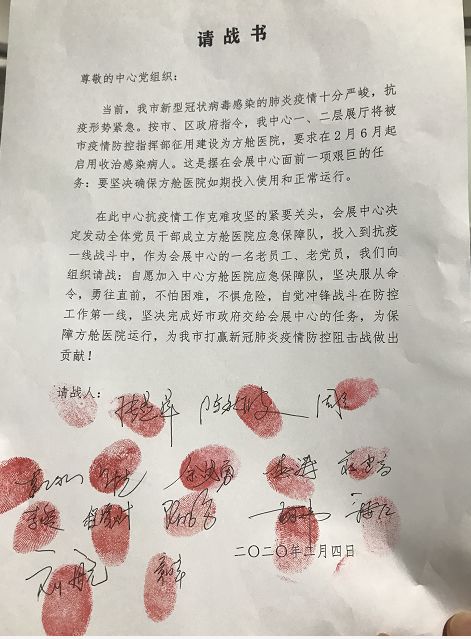 请战书
尊敬的中心党组织：
当前，我市新型冠状病毒感染的肺炎疫情十分严峻，抗
疫形势紧急。按市、区政府指令，我中心一、二层展厅将被
市疫情防控指挥部征用建设为方舱医院，要求在2月6日起
启用收治感染病人。这是摆在会展中心面前一项艰巨的任
务：要坚决确保方舱医院如期投入使用和正常运行。
在此中心抗疫情工作克难攻坚的紧要关头，会展中心决
定发动全体党员干部成立方舱医院应急保障队，投入到抗疫
一线战斗中，作为会展中心的一名老员工、老党员，我们向
组织请战：自愿加入中心方舱医院应急保障队，坚决服从命
令，勇往直前，不怕困难，不惧危险，自觉冲锋战斗在防控
工作第一线，坚决完成好市政府交给会展中心的任务，为保
障方舱医院运行，为我市打赢新冠肺炎疫情防控阻击战做出
贡献！
请战人：
二〇二〇年二月四日